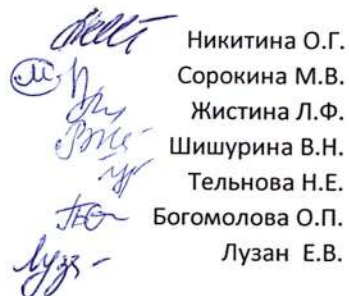 Никитина О.Г.
Сорокина М.В.
Жистина Л.Ф.
Шишурина В.Н.
Тельнова Н.Е.
Богомолова О.П.
Лузан Е.В.